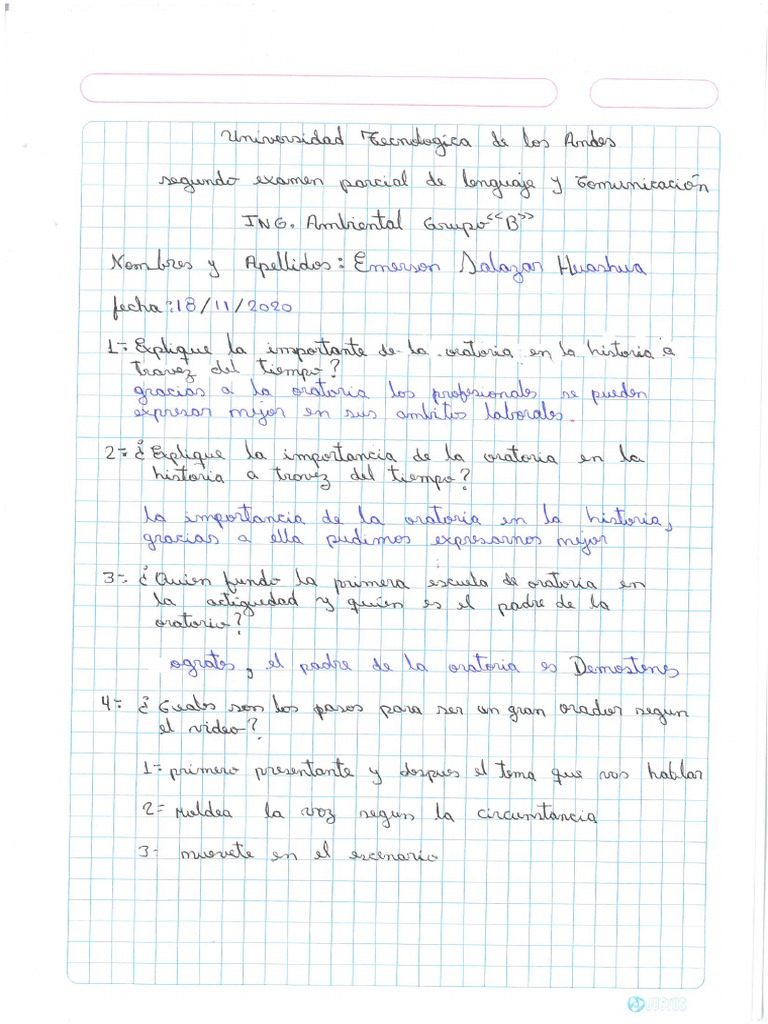 Universidad Tecnologica de los Andes
segundo examen parcial de lenguaje y Comunicación
ING. Ambiental Grupo <<B>>
Nombres y Apellidos: Emerson Salazar Huashua
fecha: 18/11/2020
1-. Explique la importante de la oratoria en la historia a
travez del tiempo?
gracias a la oratoria los profesionales se pueden
expresar mejor en sus ambitos laborales.
2-. ¿Explique la importancia de la oratoria en la
historia a travez del tiempo?
la importancia de la oratoria en la historia,
gracias a ella pudimos expresarnos mejor
3-. ¿Quien fundo la primera escuela de oratoria en
la actiguedad y quien es el padre de la
oratorio?
ogrates, el padre de la oratoria es Demostenes
4-. ¿Cuales son los pasos para ser un gran orador segun
el video?
1= primero presentante y despues el tema que vas hablar
2= Moldea la voz segun la circumstancia
3- muevete en el escenario
JUSTUS